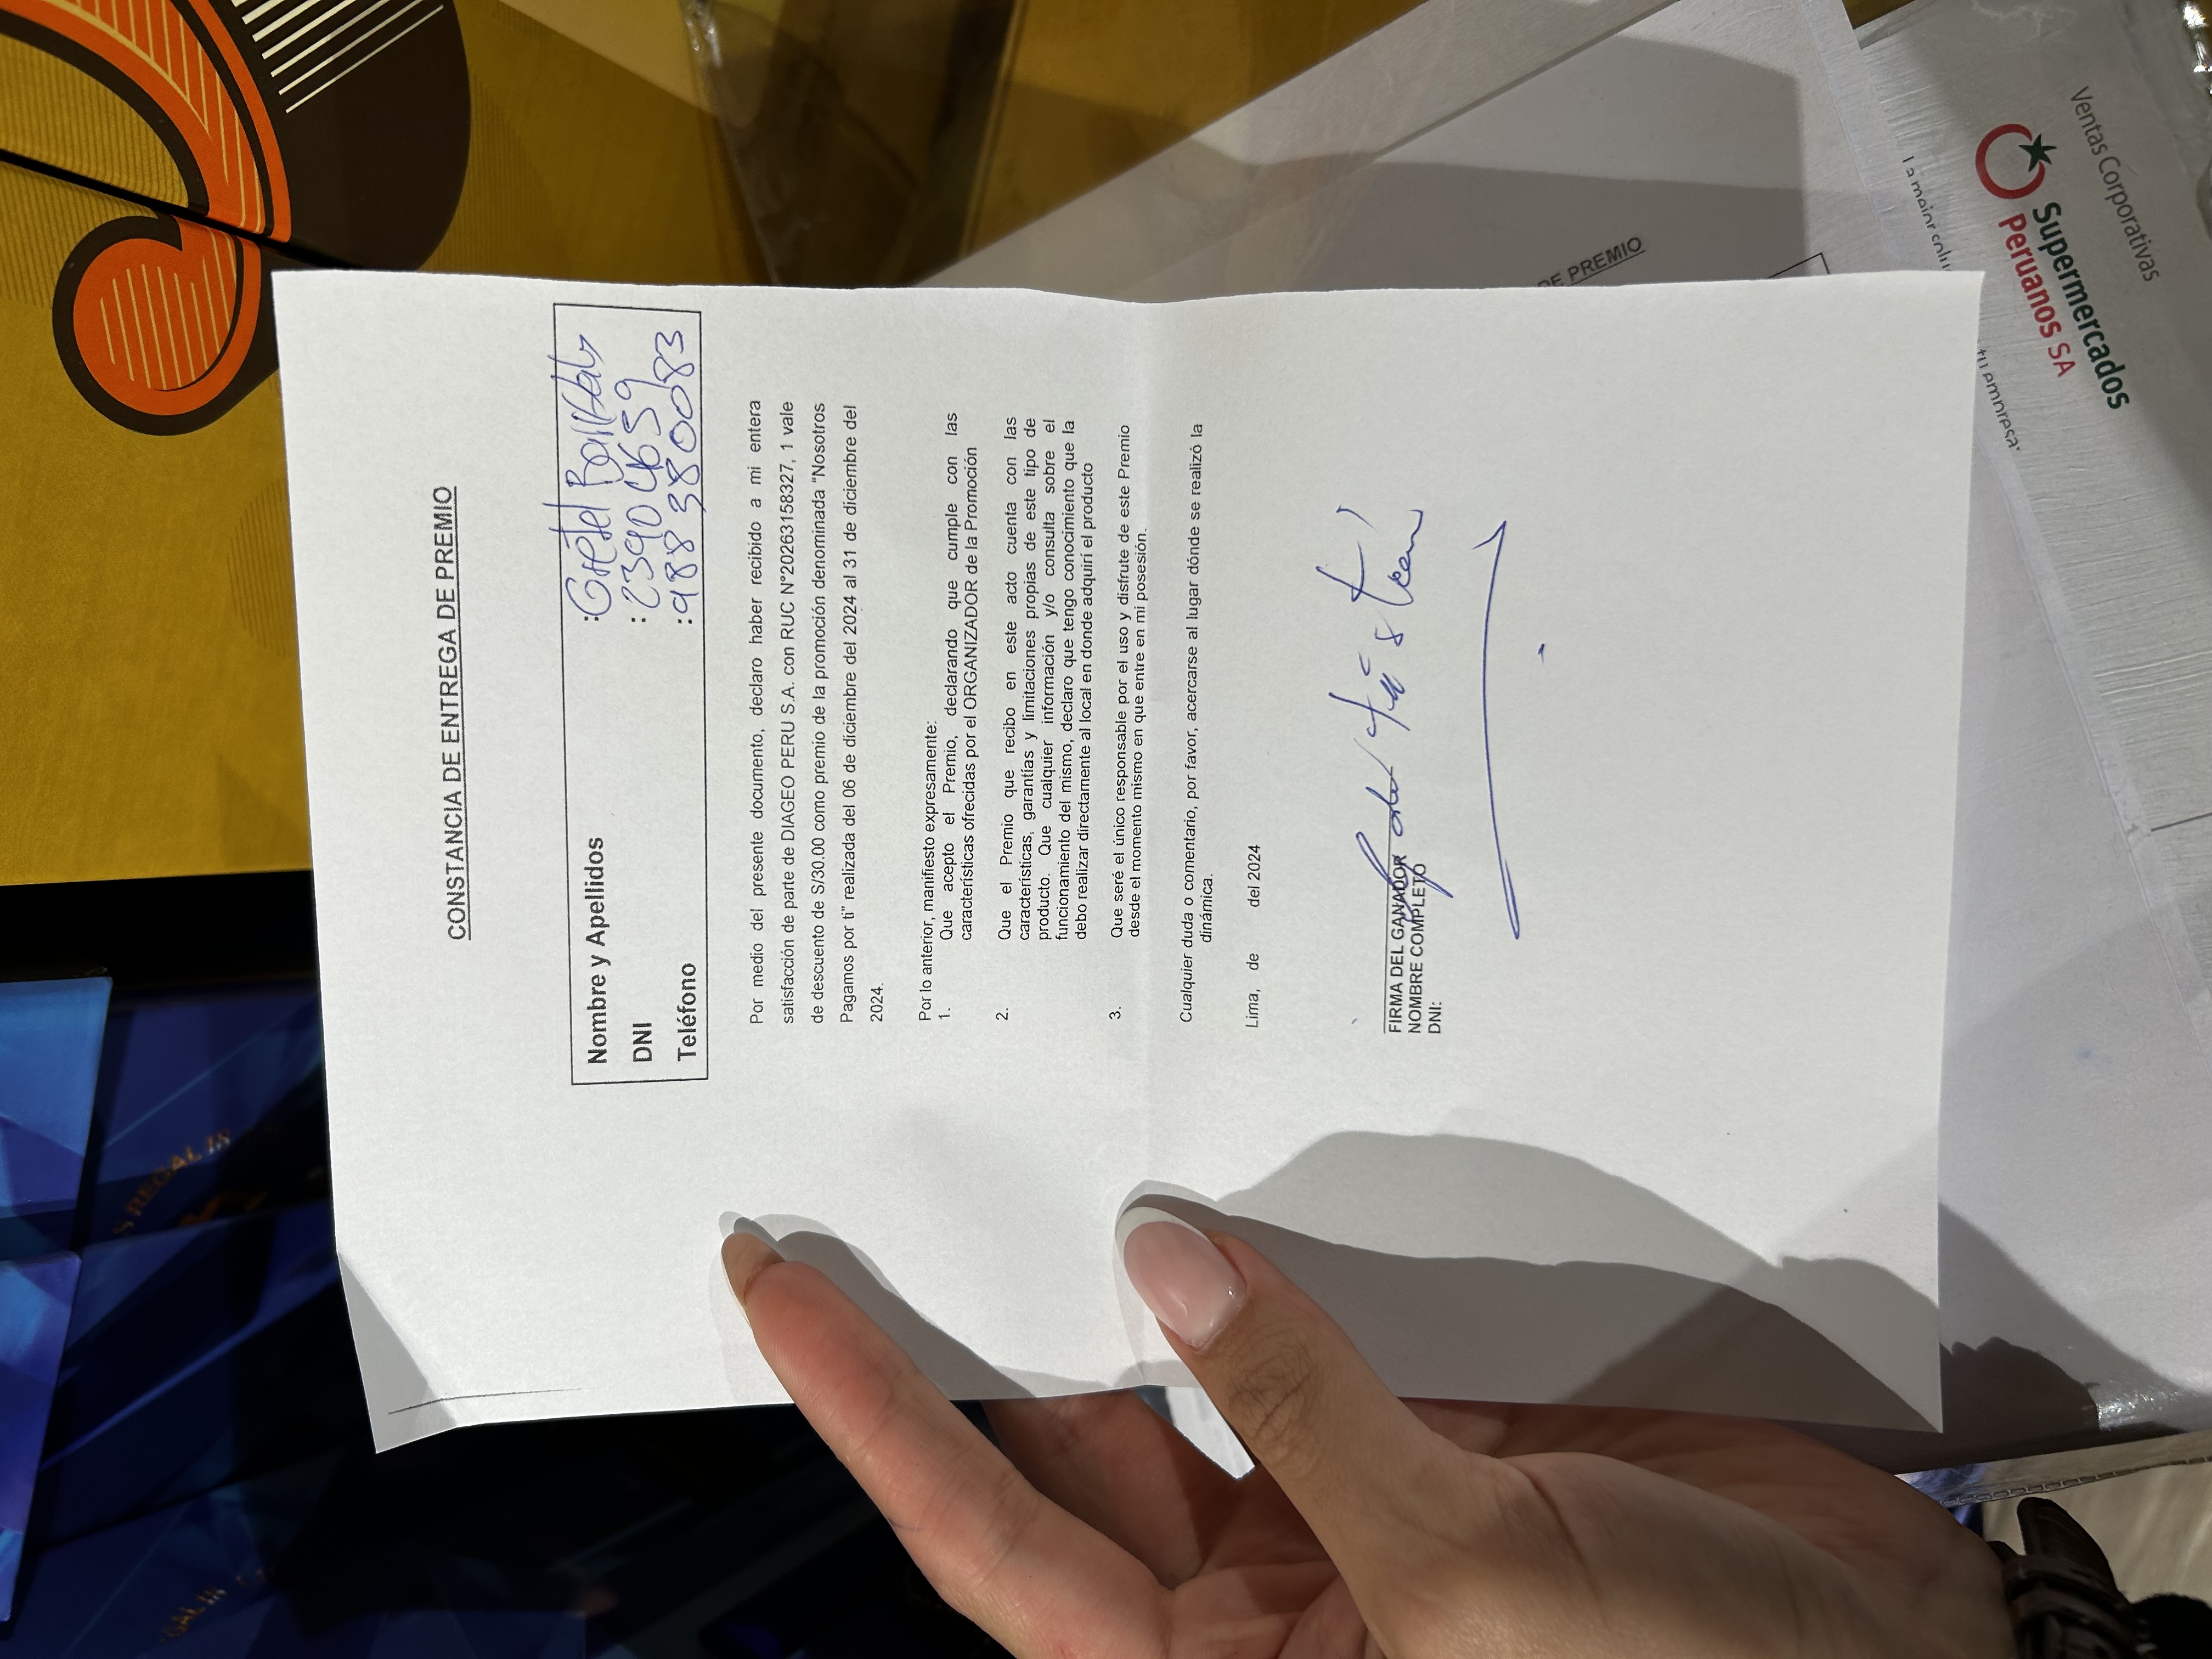 S REGALIS
GALIS
CONSTANCIA DE ENTREGA DE PREMIO
Nombre y Apellidos : Gretel
DNI : 23904659
Teléfono : 988380083
Por medio del presente documento, declaro haber recibido a mi entera
satisfacción de parte de DIAGEO PERU S.A. con RUC N°20263158327, 1 vale
de descuento de S/30.00 como premio de la promoción denominada "Nosotros
Pagamos por ti" realizada del 06 de diciembre del 2024 al 31 de diciembre del
2024.
Por lo anterior, manifiesto expresamente:
1. Que acepto el Premio, declarando que cumple con las
características ofrecidas por el ORGANIZADOR de la Promoción
2. Que el Premio que recibo en este acto cuenta con las
características, garantías y limitaciones propias de este tipo de
producto. Que cualquier información y/o consulta sobre el
funcionamiento del mismo, declaro que tengo conocimiento que la
debo realizar directamente al local en donde adquirí el producto
3. Que seré el único responsable por el uso y disfrute de este Premio
desde el momento mismo en que entre en mi posesión.
Cualquier duda o comentario, por favor, acercarse al lugar dónde se realizó la
dinámica.
Lima, de del 2024
FIRMA DEL GANADOR
NOMBRE COMPLETO
DNI:
DE PREMIO
La mejor
tu empresa.
Supermercados
Peruanos SA
Ventas Corporativas